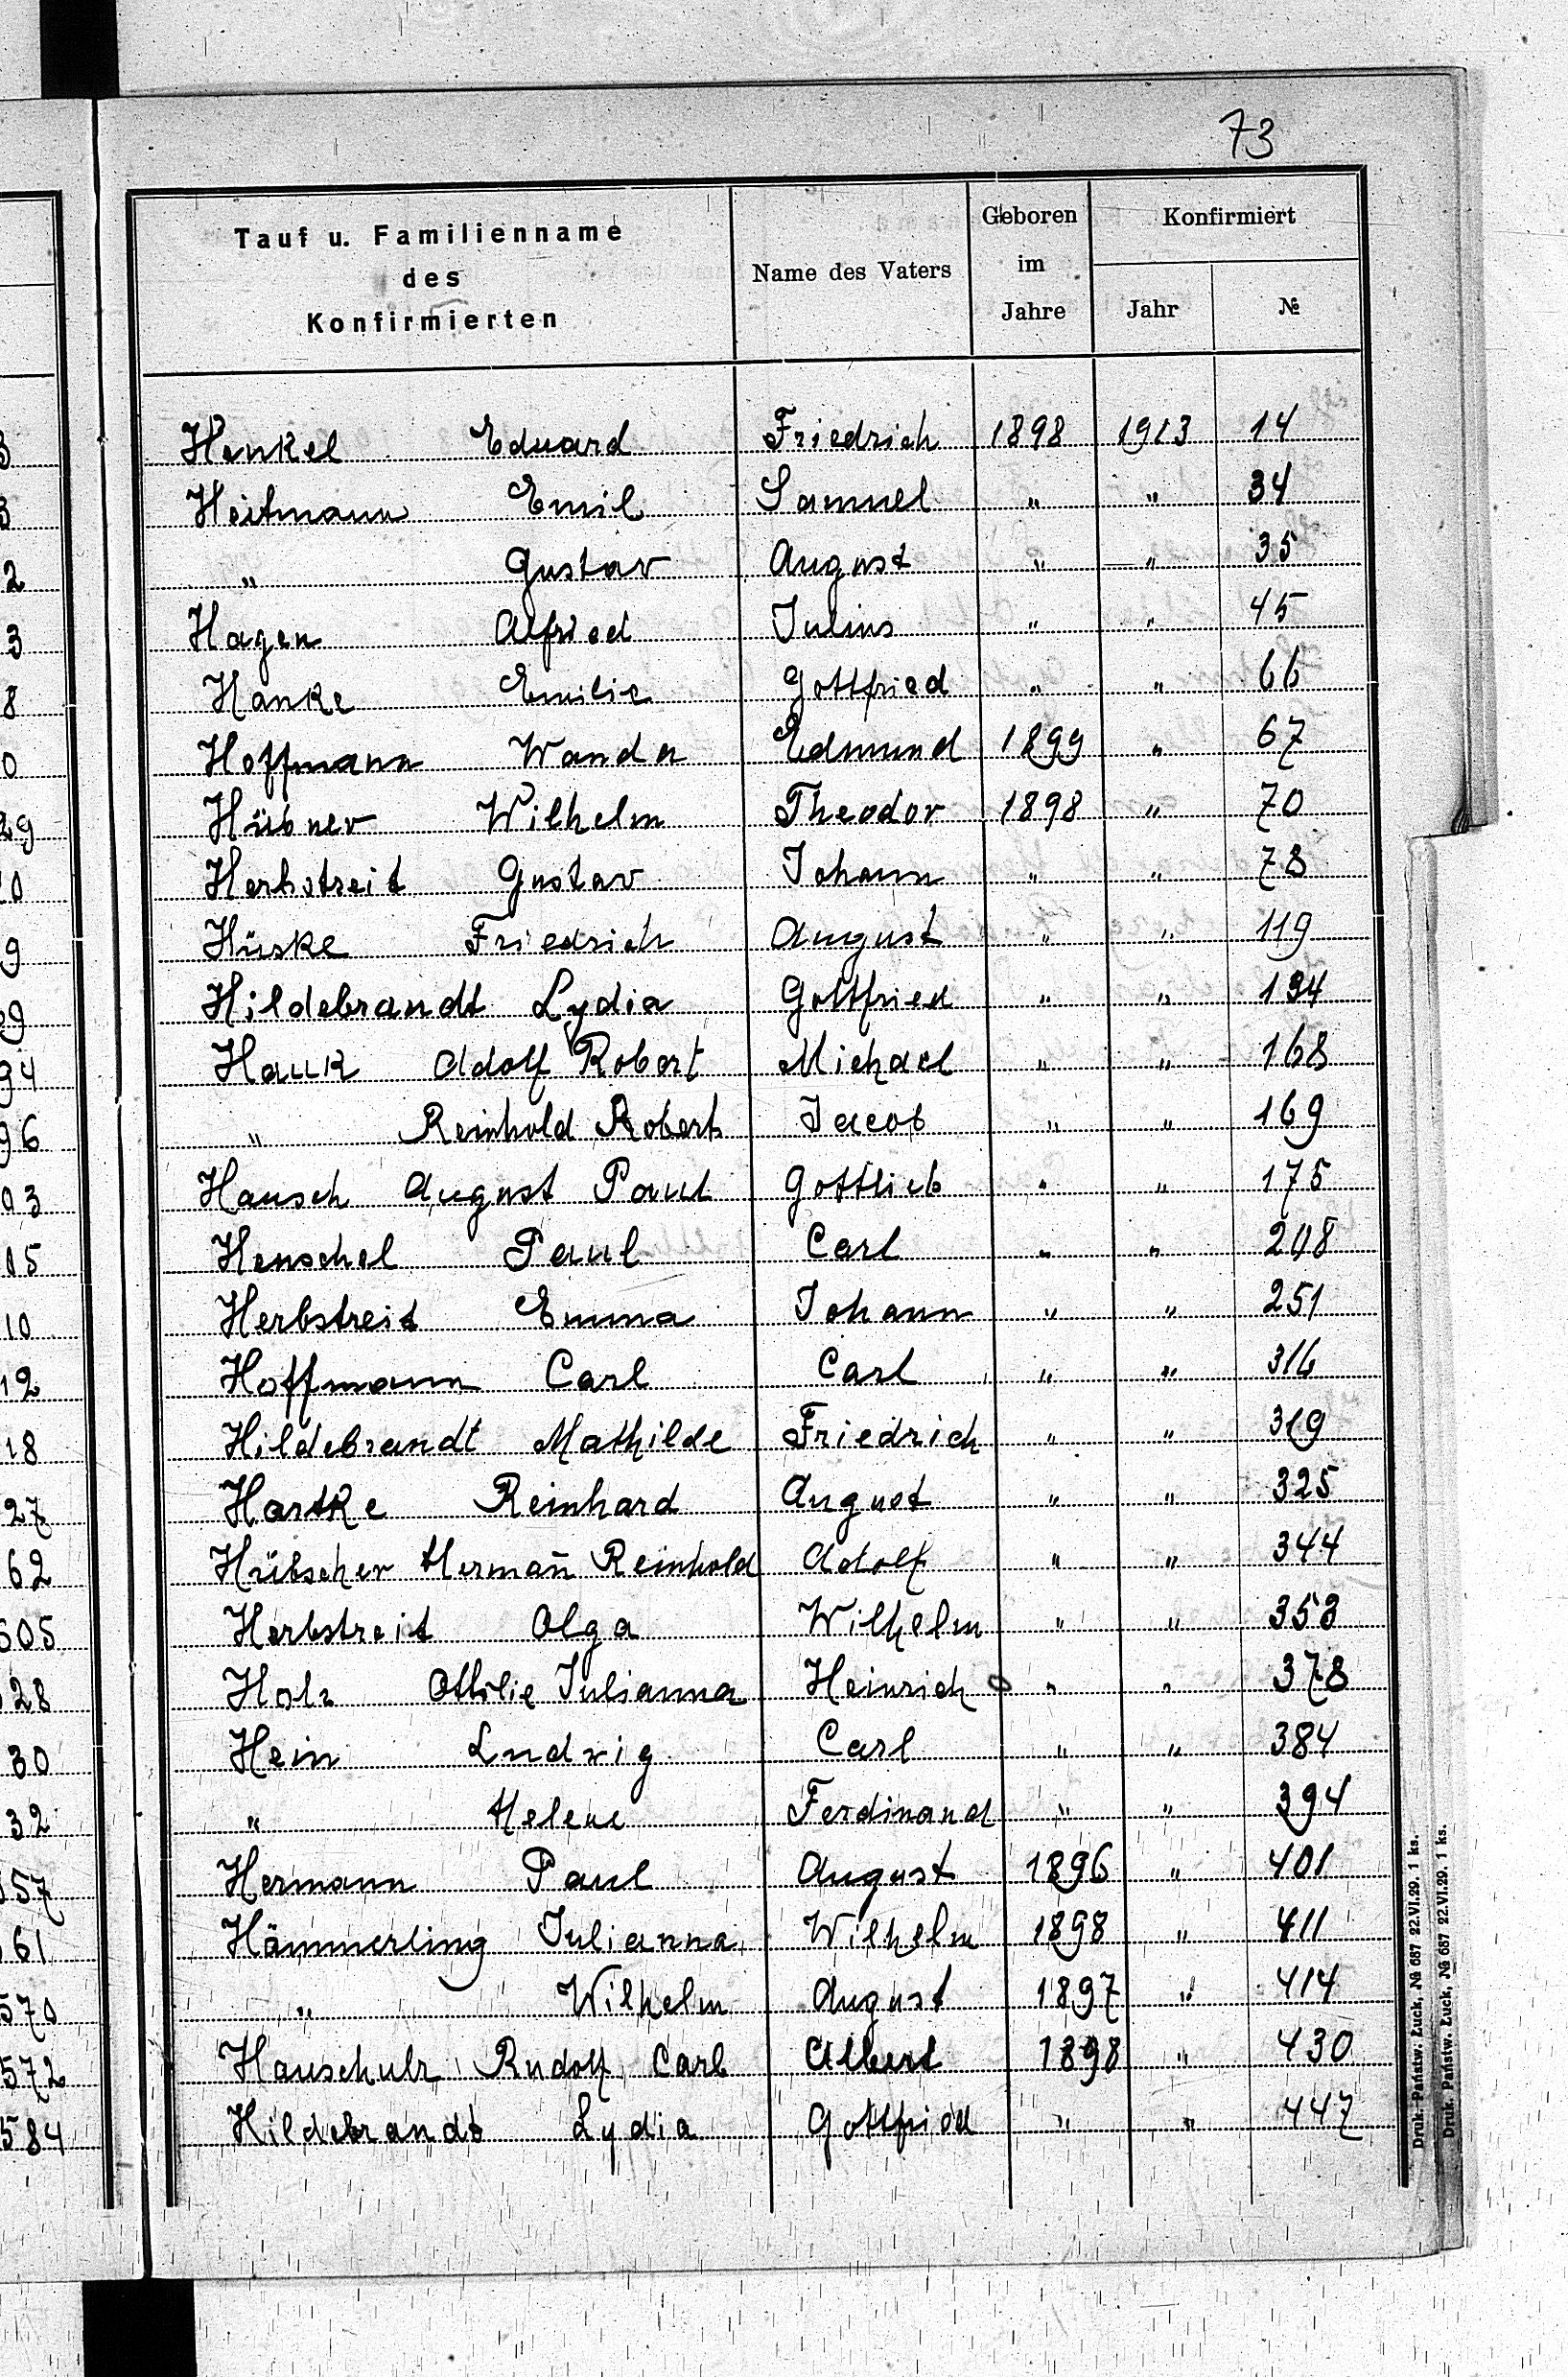 73
Tauf u. Familienname des Konfirmierten Name des Vaters Geboren im Jahre Konfirmiert Jahr №
Henkel Eduard Friedrich 1898 1913 14
Heitmann Emil Samuel " " 34
" Gustav August " " 35
Hagen Alfried Julius " " 45
Hanke Emilie Gottfried " " 66
Hoffmann Wanda Edmund 1899 " 67
Hübner Wilhelm Theodor 1898 " 70
Herbstreit Gustav Johann " " 78
Hüske Friedrich August " " 119
Hildebrandt Lydia Gottfried " " 134
Hauk Adolf Robert Michael " " 168
" Reinhold Robert Jacob " " 169
Hausch August Paul Gottlieb " " 175
Henschel Paul Carl " " 208
Herbstreit Emma Johann " " 251
Hoffmann Carl Carl " " 316
Hildebrandt Mathilde Friedrich " " 319
Hartke Reinhard August " " 325
Hübscher Hermañ Reinhold Adolf " " 344
Herbstreit Olga Wilhelm " " 353
Holz Ottilie Julianna Heinrich " " 378
Hein Ludwig Carl " " 384
" Helene Ferdinand " " 394
Hermann Paul August 1896 " 401
Hämmerling Julianna Wilhelm 1898 " 411
" Wilhelm August 1897 " 414
Hauschulz Rudolf Carl Albert 1898 " 430
Hildebrandt Lydia Gottfried " " 447
Druk. Państw. Łuck, № 687 22.VI.29. 1 ks.
Druk. Państw. Łuck, № 687 22.VI.29. 1 ks.